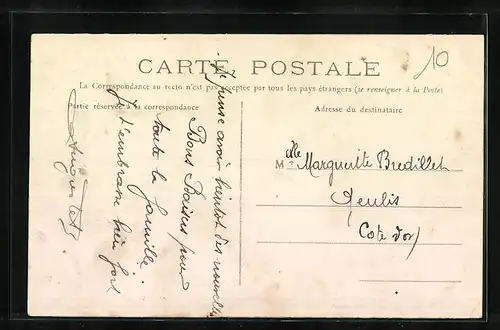 CARTE POSTALE
10
La Correspondance au recto n'est pas acceptée par tous les pays étrangers (se renseigner à la Poste)
Partie réservée à la correspondance
Adresse du destinataire
Je pense avoir bientôt des nouvelles
Bons Baisers pour
toute la famille.
Je t'embrasse bien fort
Mlle Marguerite Bredillet
Côte d'or